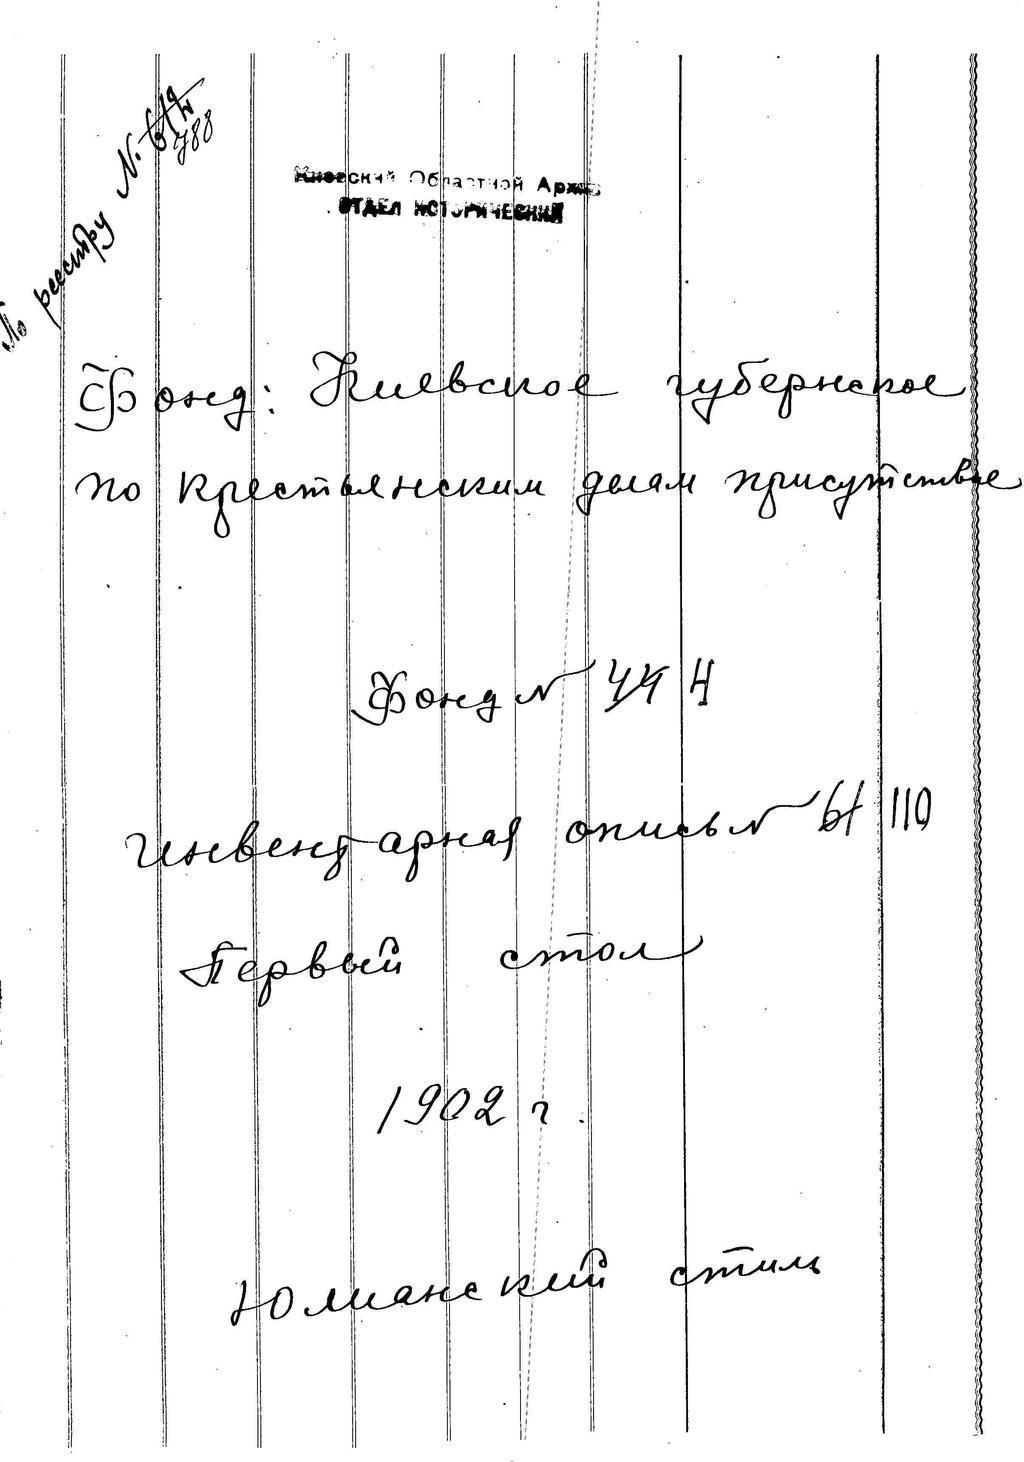 По реестру №
788
Киевский Областной Архив
ОТДЕЛ ИСТОРИЧЕСКИЙ
Фонд: Киевское губернское
по крестьянским делам присутствие
Фонд № 4
Инвентарная опись № 110
Первый стол
1902 г.
Юлианский стиль